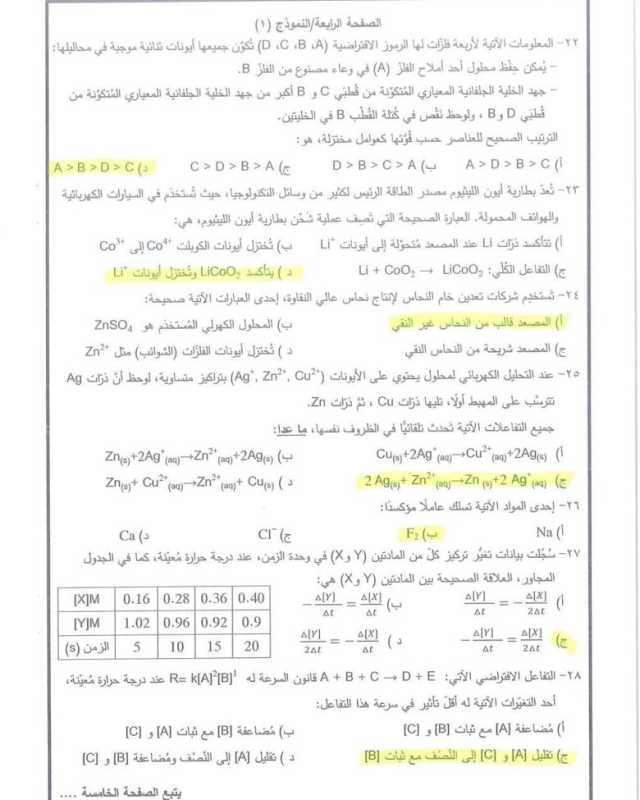 الصفحة الرابعة/النموذج (١)
٢٢- المعلومات الآتية لأربعة فلزّات لها الرموز الافتراضية (D ،C ،B ،A) تُكوّن جميعها أيونات ثنائية موجبة في محاليلها:
- يُمكن حِفْظ محلول أحد أملاح الفلزّ (A) في وعاء مصنوع من الفلزّ B.
- جهد الخلية الجلفانية المعياري المُتكوّنة من قُطبَي C و B أكبر من جهد الخلية الجلفانية المعياري المُتكوّنة من
قُطبَي D و B ، ولوحظ نقْص في كُتلة القُطْب B في الخليتين.
الترتيب الصحيح للعناصر حسب قُوّتها كعوامل مختزلة، هو:
أ) A > D > B > C ب) D > B > C > A ج) C > D > B > A د) A > B > D > C
٢٣- تُعدّ بطارية أيون الليثيوم مصدر الطاقة الرئيس لكثير من وسائل التكنولوجيا، حيث تُستخدَم في السيارات الكهربائية
والهواتف المحمولة. العبارة الصحيحة التي تَصِف عملية شَحْن بطارية أيون الليثيوم، هي:
أ) تتأكسد ذرّات Li عند المصعد مُتحوّلة إلى أيونات Li⁺ ب) تُختزل أيونات الكوبلت Co⁴⁺ إلى Co³⁺
ج) التفاعل الكُلّي: Li + CoO₂ → LiCoO₂ د ) يتأكسد LiCoO₂ وتُختزل أيونات Li⁺
٢٤- تَستخدِم شركات تعدين خام النحاس لإنتاج نحاس عالي النقاوة، إحدى العبارات الآتية صحيحة:
أ) المصعد قالب من النحاس غير النقي ب) المحلول الكهرلي المُستخدَم هو ZnSO₄
ج) المصعد شريحة من النحاس النقي د ) تُختزل أيونات الفلزّات (الشوائب) مثل Zn²⁺
٢٥- عند التحليل الكهربائي لمحلول يحتوي على الأيونات (Ag⁺, Zn²⁺, Cu²⁺) بتراكيز متساوية، لوحظ أنّ ذرّات Ag
تترسّب على المهبط أولًا، تليها ذرّات Cu ، ثمّ ذرّات Zn.
جميع التفاعلات الآتية تَحدث تلقائيًّا في الظروف نفسها، ما عدا:
أ) Cu(s)+2Ag⁺(aq)→Cu²⁺(aq)+2Ag(s) ب) Zn(s)+2Ag⁺(aq)→Zn²⁺(aq)+2Ag(s)
ج) 2 Ag(s)+ Zn²⁺(aq)→Zn (s)+2 Ag⁺(aq) د ) Zn(s)+ Cu²⁺(aq)→Zn²⁺(aq)+ Cu(s)
٢٦- إحدى المواد الآتية تسلك عاملًا مؤكسدًا:
أ) Na ب) F₂ ج) Cl⁻ د) Ca
٢٧- سُجّلت بيانات تغيُّر تركيز كلّ من المادتين (X و Y) في وحدة الزمن، عند درجة حرارة مُعيّنة، كما في الجدول
المجاور، العلاقة الصحيحة بين المادتين (X و Y) هي:
أ) Δ[Y]/Δt = − Δ[X]/2Δt ب) − Δ[Y]/Δt = Δ[X]/Δt
ج) − Δ[Y]/Δt = Δ[X]/2Δt د ) Δ[Y]/2Δt = − Δ[X]/Δt
[X]M 0.16 0.28 0.36 0.40
[Y]M 1.02 0.96 0.92 0.9
الزمن (s) 5 10 15 20
٢٨- التفاعل الافتراضي الآتي: A + B + C → D + E قانون السرعة له R= k[A]²[B]¹ عند درجة حرارة مُعيّنة،
أحد التغيّرات الآتية له أقلّ تأثير في سرعة هذا التفاعل:
أ) مُضاعفة [A] مع ثبات [B] و [C] ب) مُضاعفة [B] مع ثبات [A] و [C]
ج) تقليل [A] و [C] إلى النّصْف مع ثبات [B] د ) تقليل [A] إلى النّصْف ومُضاعفة [B] و [C]
يتبع الصفحة الخامسة ....